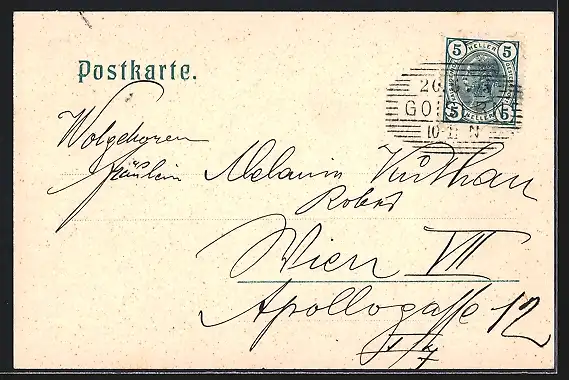 Postkarte.
5 HELLER 5
5 HELLER 5
26
10-11 N
Wolgeboren
Fräulein Melanie
Robert
Wien VII
Apollogasse 12